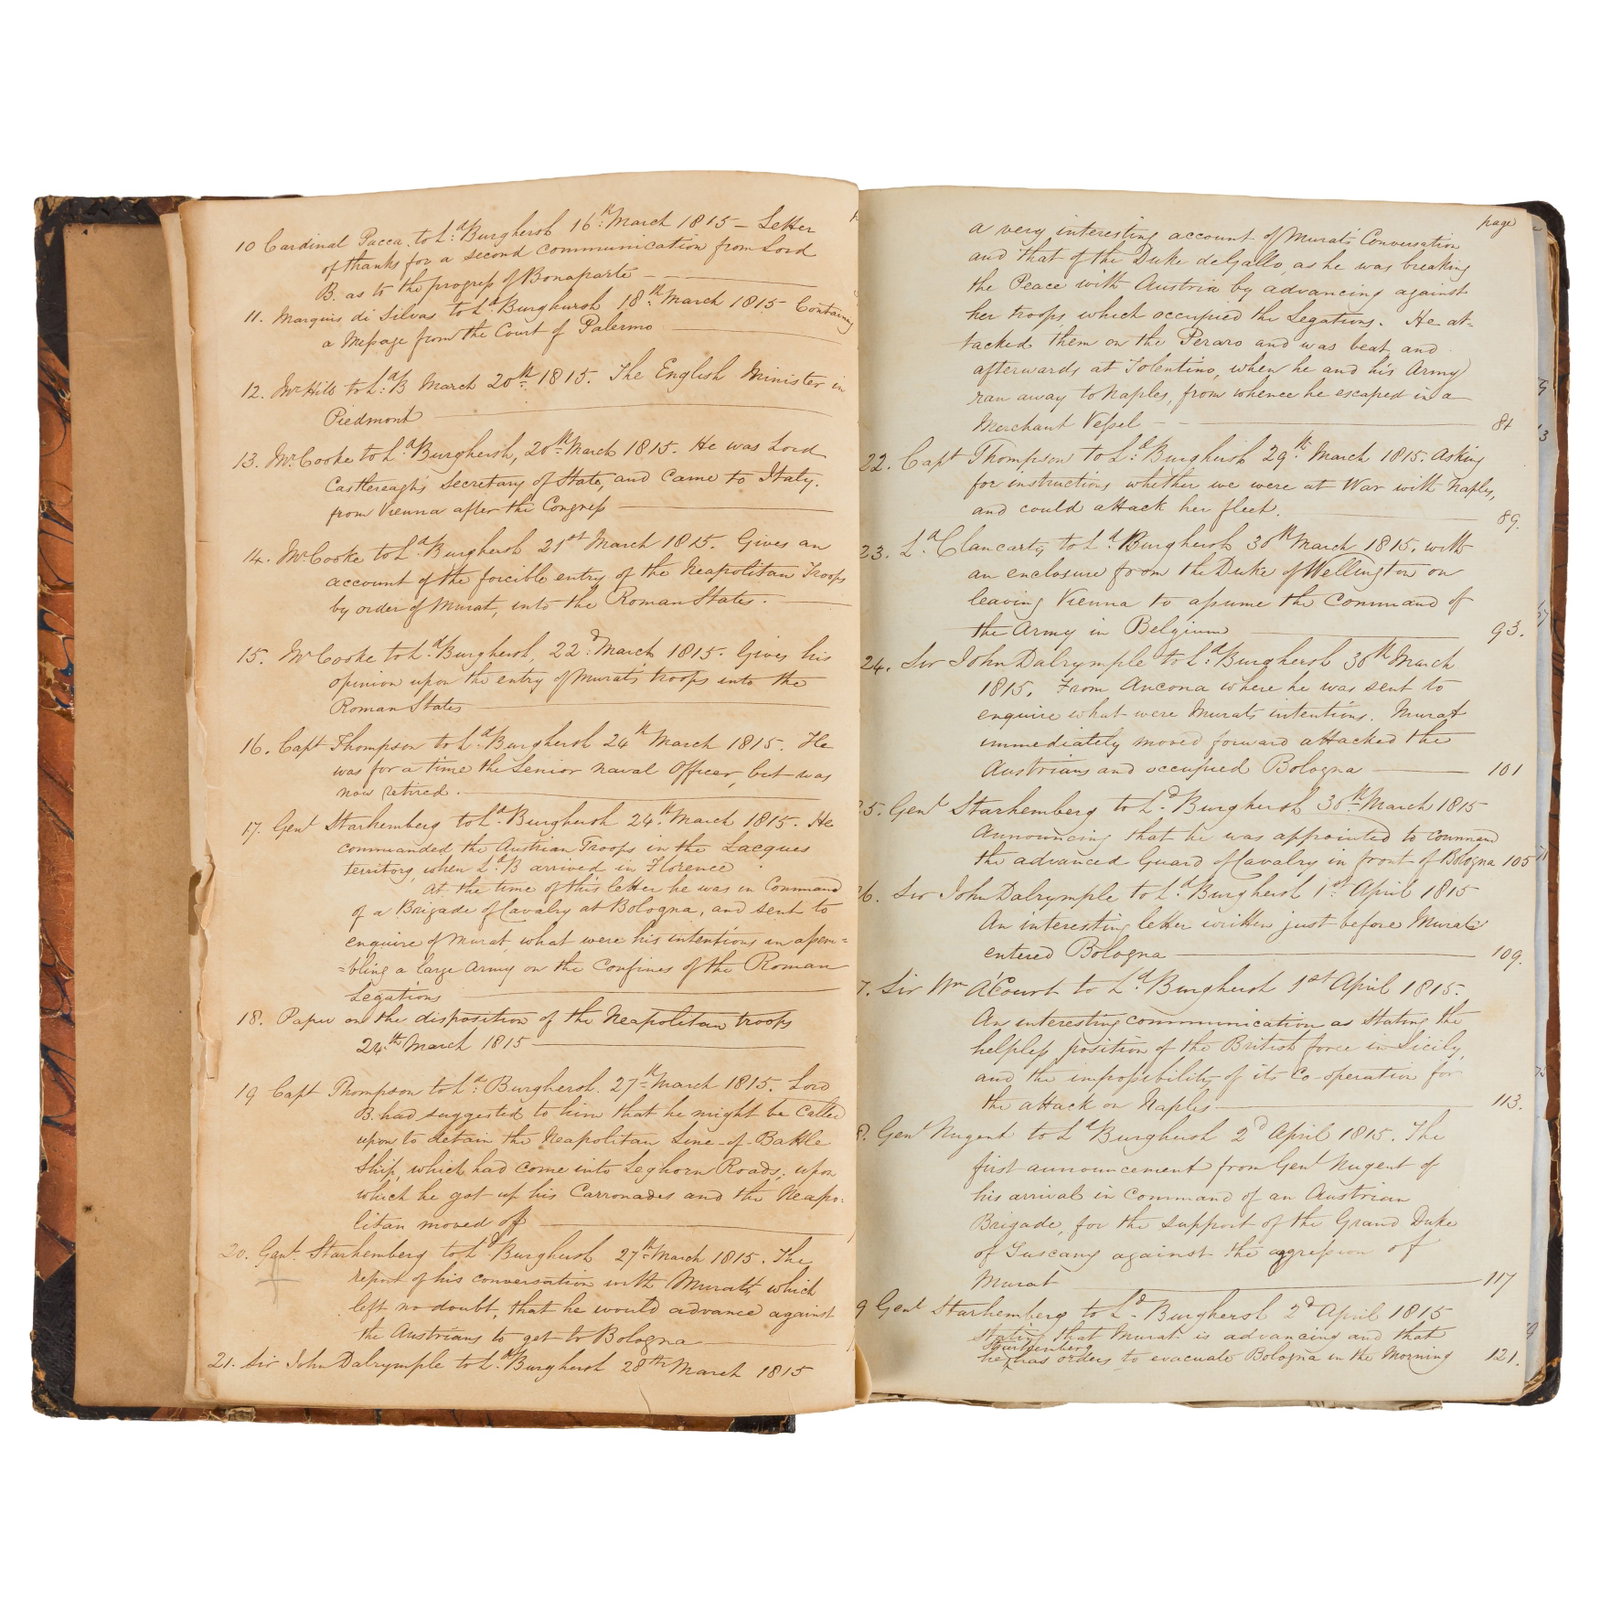 10 Cardinal Pacca to Ld. Burghersh 16th March 1815 - Letter
of thanks for a second communication from Lord
B. as to the progress of Bonaparte
11. Marquis di Silvas to Ld Burghersh 18th March 1815 - Containing
a Message from the Court of Palermo
12. Mr Hill to Ld B March 20th 1815. The English Minister in
Piedmont
13. Mr Cooke to Ld Burghersh, 20th March 1815. He was Lord
Castlereagh's Secretary of State, and came to Italy
from Vienna after the Congress
14. Mr Cooke to Ld. Burghersh 21st March 1815. Gives an
account of the forcible entry of the Neapolitan Troops
by order of Murat, into the Roman States.
15. Mr Cooke to Ld. Burghersh, 22d March 1815. Gives his
opinion upon the entry of Murat's troops into the
Roman States
16. Capt Thompson to Ld. Burghersh 24th March 1815. He
was for a time the Senior Naval Officer, but was
now retired.
17. Genl Starhemberg to Ld Burghersh 24th March 1815. He
commanded the Austrian Troops in the Lacques
territory, when Ld B arrived in Florence
At the time of this letter he was in Command
of a Brigade of Cavalry at Bologna, and sent to
enquire of Murat what were his intentions in assem=
=bling a large Army on the Confines of the Roman
Legations
18. Paper on the disposition of the Neapolitan troops
24th March 1815
19 Capt Thompson to Ld. Burghersh. 27th March 1815. Lord
B. had suggested to him that he might be called
upon to detain the Neapolitan Line-of-Battle
Ship, which had come into Leghorn Roads, upon
which he got up his Carronades and the Neapo-
litan moved off
20. Genl. Starhemberg to Ld Burghersh 27th March 1815. The
report of his conversation with Murat, which
left no doubt, that he would advance against
the Austrians to get to Bologna
21. Sir John Dalrymple to Ld. Burghersh 28th March 1815
page
a very interesting account of Murat's Conversation
and that of the Duke de Gallo, as he was breaking
the Peace with Austria by advancing against
her troops which occupied the Legations. He at=
tacked them on the Peraro and was beat, and
afterwards at Tolentino, when he and his Army
ran away to Naples, from whence he escaped in a
Merchant Vessel - - 84
22. Capt Thompson to Ld. Burghersh 29th March 1815. Asking
for instructions whether we were at War with Naples,
and could attack her fleet. 89.
23. Ld Clancarty to Ld. Burghersh 30th March 1815. with
an enclosure from the Duke of Wellington on
leaving Vienna to assume the Command of
the Army in Belgium 93.
24. Sir John Dalrymple to Ld. Burghersh 30th March
1815. From Ancona where he was sent to
enquire what were Murat's intentions. Murat
immediately moved forward attacked the
Austrians and occupied Bologna 101
5. Genl Starhemberg to Ld. Burghersh 30th March 1815
Announcing that he was appointed to command
the advanced Guard of Cavalry in front of Bologna 105
6. Sir John Dalrymple to Ld. Burghersh 1st April 1815
An interesting letter written just before Murat
entered Bologna 109.
7. Sir Wm A'Court to Ld. Burghersh 1st April 1815.
An interesting communication as stating the
helpless position of the British force in Sicily,
and the impossibility of its Co-operation for
the attack on Naples 113.
8. Genl Nugent to Ld Burghersh 2d April 1815. The
first announcement from Genl Nugent of
his arrival in command of an Austrian
Brigade, for the support of the Grand Duke
of Tuscany against the aggression of
Murat 117
9 Genl Starhemberg to Ld. Burghersh 2d April 1815
stating that Murat is advancing and that
Starhemberg
he has orders to evacuate Bologna in the Morning 121.